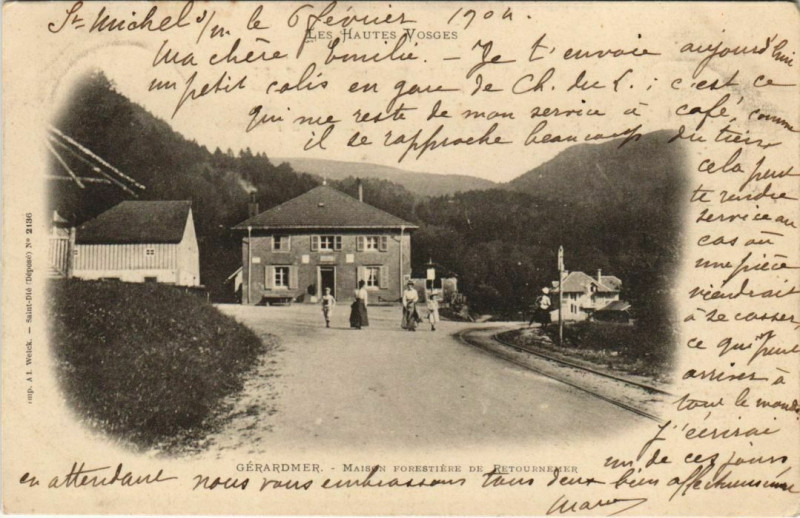 St Michel s/m le 6 février 1904.
LES HAUTES VOSGES
Ma chère Emilie. — Je t'envoie aujourd'hui
un petit colis en gare de Ch. du L. ; c'est ce
qui me reste de mon service à café, comme
il se rapproche beaucoup du tien
cela peut
te rendre
service au
cas où
une pièce
viendrait
à se casser,
ce qui peut
arriver à
tout le monde
J'écrirai
un de ces jours
en attendant nous vous embrassons tous deux bien affectueusement
Marie
imp. Ad. Weick. — Saint-Dié (Déposé) No 2136
GÉRARDMER. - MAISON FORESTIÈRE DE RETOURNEMER